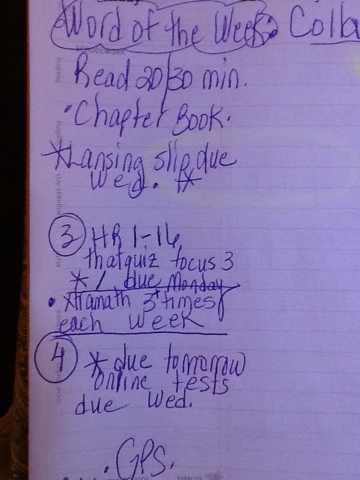 Word of the Week: Colla
Read 20/30 min.
• Chapter Book.
* Lansing slip due
Wed. *
③ HR 1-16
thatquiz focus 3
* / due Monday
• Xtramath 3+ times
each week
④ * due tomorrow
Online tests
due Wed.
• GPS.